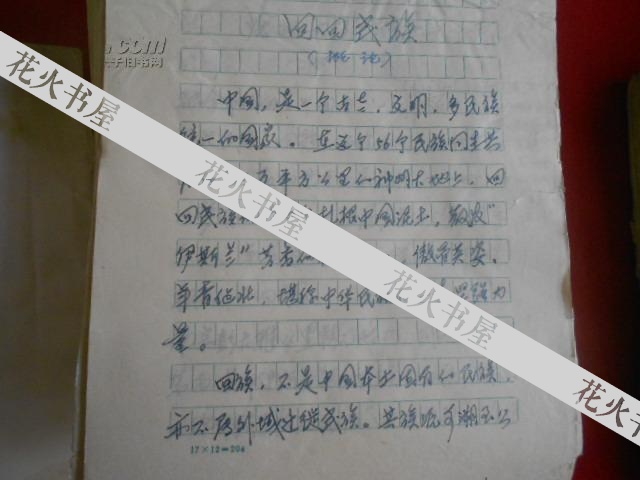 回回民族
（概论）
中国，是一个古老，文明，多民族
统一的国家。在这个56个民族同生共
万平方公里的神明大地上，回
回民族 扎根中国泥土，散发“
伊斯兰”芳香 ，傲首英姿。
草青 壮，堪称中华民 力
量。
回族，不是中国本土固有的民族，
亦不属外域迁徙民族。其族 可溯至公
17×12=204
花火书屋
花火书屋
花火书屋
花火书屋
.com
千旧书网